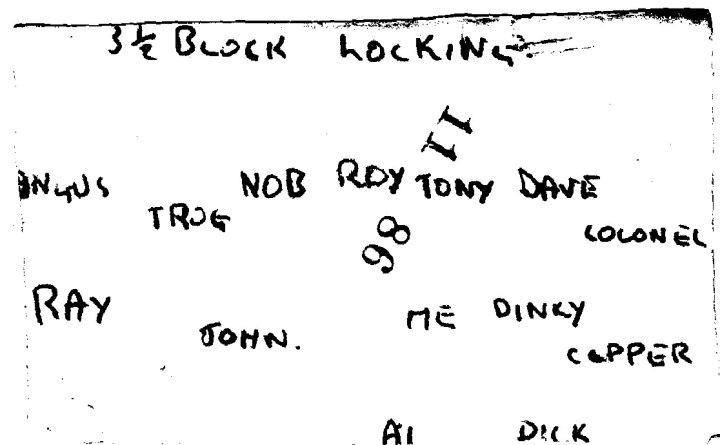 3½ BLOCK LOCKING.
II
ANGUS NOB ROY TONY DAVE
TROG COLONEL
98
RAY ME DINKY
JOHN. COPPER
AL DICK